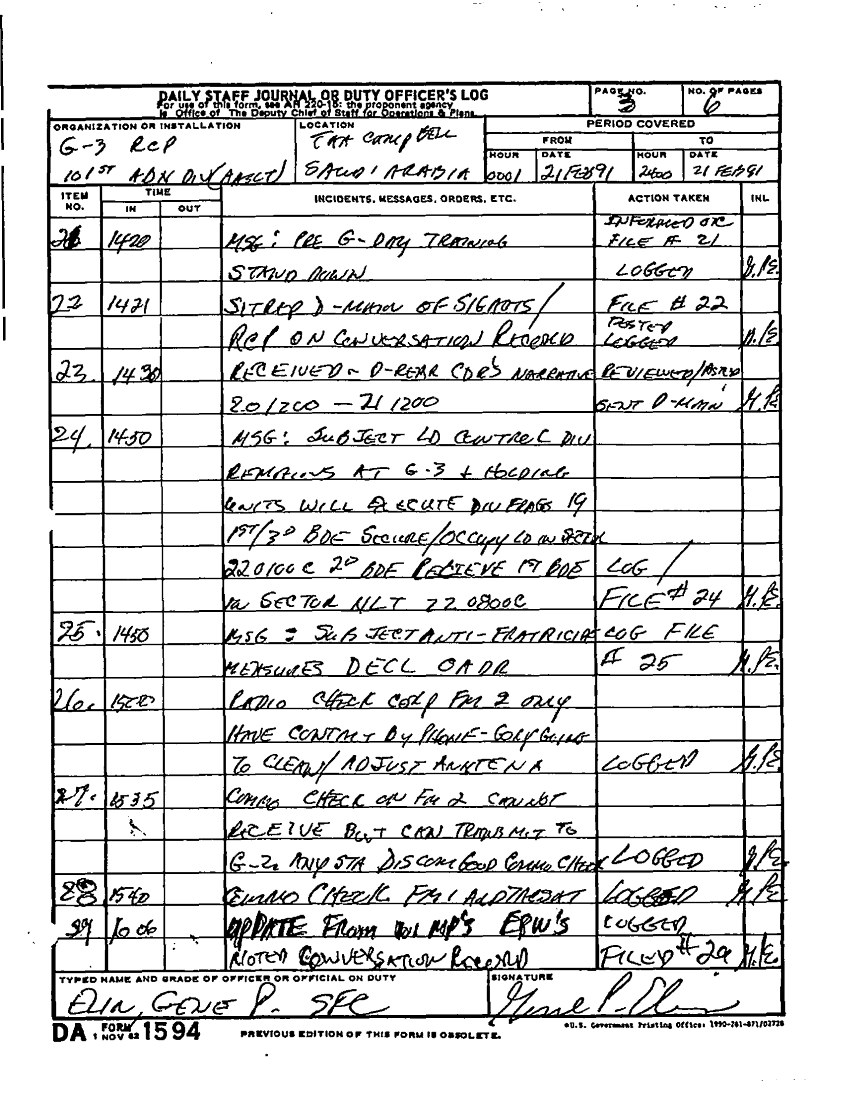 DAILY STAFF JOURNAL OR DUTY OFFICER'S LOG
For use of this form, see AR 220-15; the proponent agency
is Office of The Deputy Chief of Staff for Operations & Plans.
PAGE NO.
3
NO. OF PAGES
6
ORGANIZATION OR INSTALLATION
G-3 RCP
101ST ABN DIV (AASLT)
LOCATION
TAA CAMPBELL
SAUDI ARABIA
PERIOD COVERED
FROM
TO
HOUR
0001
DATE
21 FEB 91
HOUR
2400
DATE
21 FEB 91
ITEM NO.
TIME
IN
OUT
INCIDENTS, MESSAGES, ORDERS, ETC.
ACTION TAKEN
INL
INFORMED
21 1420 MSG: PRE G-DAY TRAINING FILE # 21
STAND DOWN LOGGED
22 1421 SITREP D-MAIN OF / FILE # 22
POSTED
RCP ON CONVERSATION RECORD LOGGED
23. 1430 RECEIVED - D-REAR CDR'S NARRATIVE REVIEWED/
201200 - 211200 SENT D-MAIN
24. 1450 MSG: SUBJECT LD CONTROL DIV
REMAINS AT G-3 + HOLDING
UNITS WILL EXECUTE DIV FRAGS 19
1ST/3D BDE SECURE/OCCUPY LD IN SECTOR
220100C 2D BDE RELIEVE 1ST BDE LOG /
IN SECTOR NLT 220800C FILE # 24
25. 1450 MSG: SUBJECT ANTI-FRATRICIDE LOG FILE
MEASURES DECL OADR # 25
26. 1500 RADIO CHECK CORP FM 2 ONLY
HAVE CONTACT BY PHONE- GOING
TO CLEAN/ADJUST ANNTENA LOGGED
27. 1535 COMMO CHECK ON FM 2 CANNOT
RECEIVE BUT CAN TRANSMIT TO
G-2. ANY STA GOOD COMMO CHECK LOGGED
28 1540 COMMO CHECK FM 1 LOGGED
29 UPDATE FROM MP'S EPW'S LOGGED
CONVERSATION RECORD FILED # 29
TYPED NAME AND GRADE OF OFFICER OR OFFICIAL ON DUTY
GENE P. SFC
SIGNATURE
DA FORM 1 NOV 62 1594
PREVIOUS EDITION OF THIS FORM IS OBSOLETE.
U.S. Government Printing Office: 1990-261-871/02728